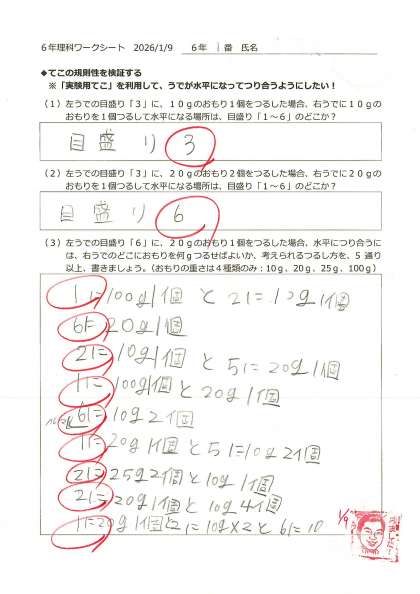 6年理科ワークシート 2026/1/9 6年 1番 氏名
◆てこの規則性を検証する
※「実験用てこ」を利用して、うでが水平になってつり合うようにしたい!
(1)左うでの目盛り「3」に、10gのおもり1個をつるした場合、右うでに10gの
おもりを1個つるして水平になる場所は、目盛り「1~6」のどこか?
目盛り 3
(2)左うでの目盛り「3」に、20gのおもり2個をつるした場合、右うでに20gの
おもりを1個つるして水平になる場所は、目盛り「1~6」のどこか?
目盛り 6
(3)左うでの目盛り「6」に、20gのおもり1個をつるした場合、水平につり合うに
は、右うでのどこにおもりを何gつるせばよいか、考えられるつるし方を、5通り
以上、書きましょう。(おもりの重さは4種類のみ:10g、20g、25g、100g)
1に100g1個と2に10g1個
6に20g1個
2に10g1個と5に20g1個
1に100g1個と20g1個
6に10g2個
1に20g1個と5に10g2個
2に25g2個と10g1個
2に20g1個と10g4個
1に20g1個と2に10g×2と6に10
1/9